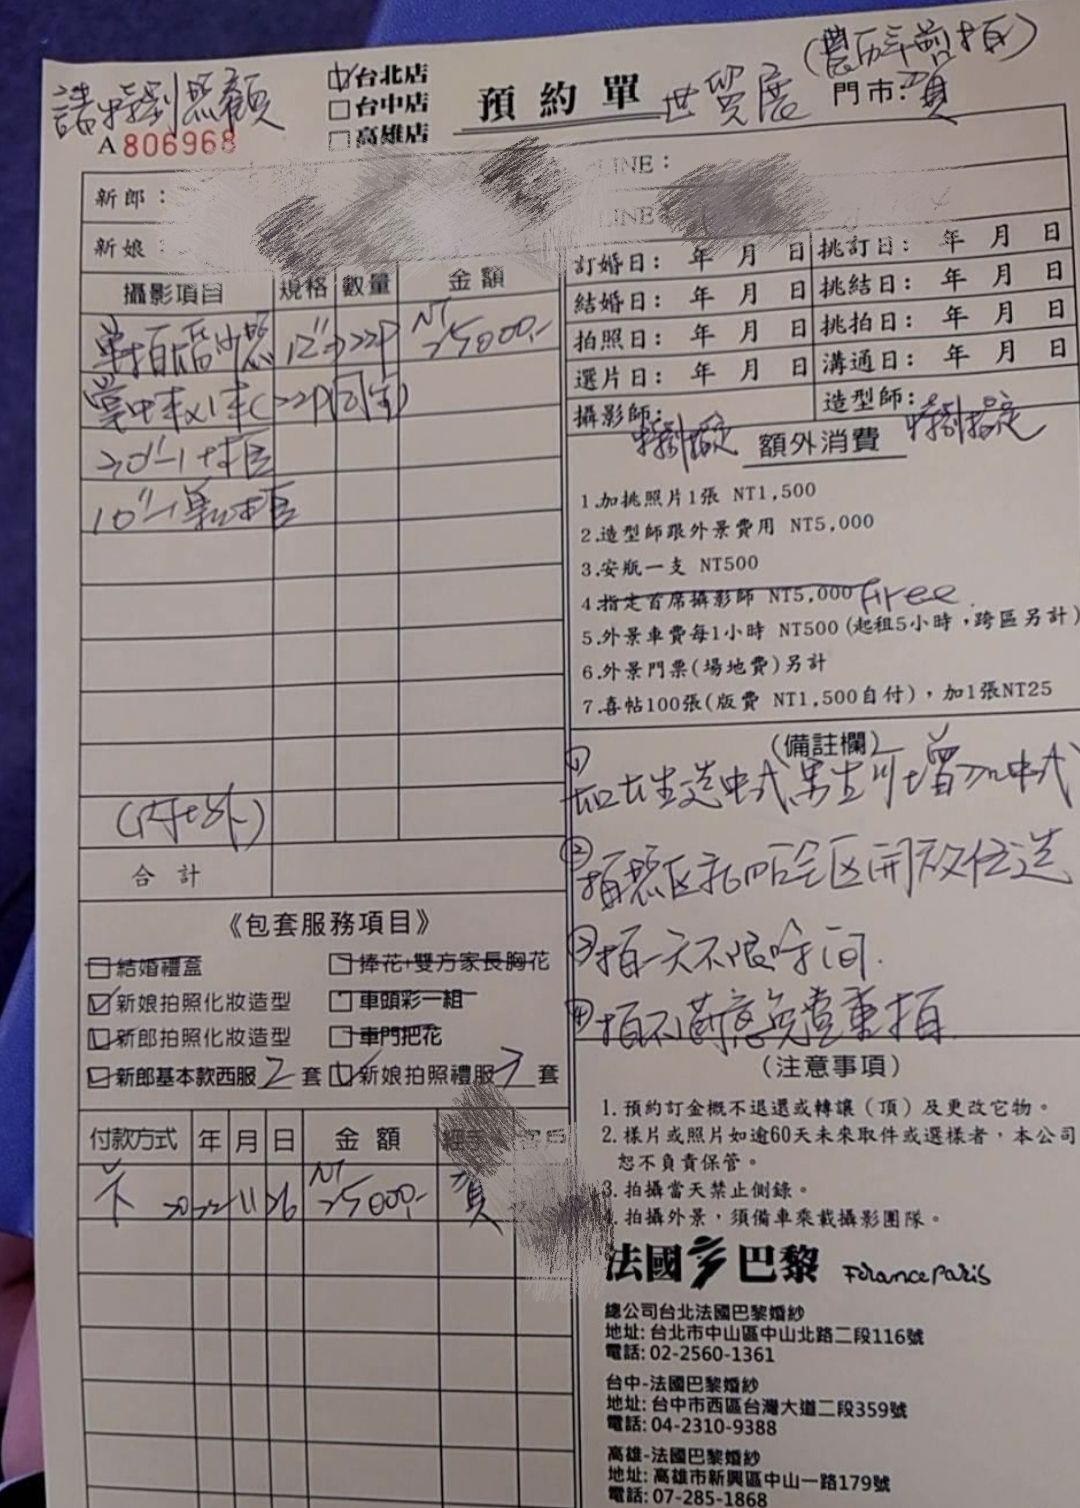 (農历年前拍)
請特別照顧
台北店
台中店
高雄店
預約單
世貿展
門市:賀
A 806968
新郎：
LINE：
新娘：
LINE
攝影項目 規格 數量 金額
訂婚日: 年 月 日 挑訂日: 年 月 日
結婚日: 年 月 日 挑結日: 年 月 日
拍照日: 年 月 日 挑拍日: 年 月 日
選片日: 年 月 日 溝通日: 年 月 日
攝影師: 特別指定 造型師: 特別指定
單拍婚紗照 12" 22P NT 25000.-
20"
10"
(內+外)
合計
額外消費
1.加挑照片1張 NT1,500
2.造型師跟外景費用 NT5,000
3.安瓶一支 NT500
4.指定首席攝影師 NT5,000 free
5.外景車費每1小時 NT500 (起租5小時，跨區另計)
6.外景門票(場地費)另計
7.喜帖100張(版費 NT1,500自付)，加1張NT25
(備註欄)
① 如女生選中式男生可增加中式
② 拍照区礼服全区開放任選
③ 拍一天不限時间.
④ 拍不滿意免費重拍
《包套服務項目》
結婚禮盒 捧花+雙方家長胸花
新娘拍照化妝造型 車頭彩一組
新郎拍照化妝造型 車門把花
新郎基本款西服 2 套 新娘拍照禮服 3 套
付款方式 年 月 日 金額
卡 2022 11 26 NT 25000.- 賀
(注意事項)
1.預約訂金概不退還或轉讓（頂）及更改它物。
2.樣片或照片如逾60天未來取件或選樣者，本公司
恕不負責保管。
3.拍攝當天禁止側錄。
4.拍攝外景，須備車乘載攝影團隊。
法國巴黎 France Paris
總公司台北法國巴黎婚紗
地址: 台北市中山區中山北路二段116號
電話: 02-2560-1361
台中-法國巴黎婚紗
地址: 台中市西區台灣大道二段359號
電話: 04-2310-9388
高雄-法國巴黎婚紗
地址: 高雄市新興區中山一路179號
電話: 07-285-1868